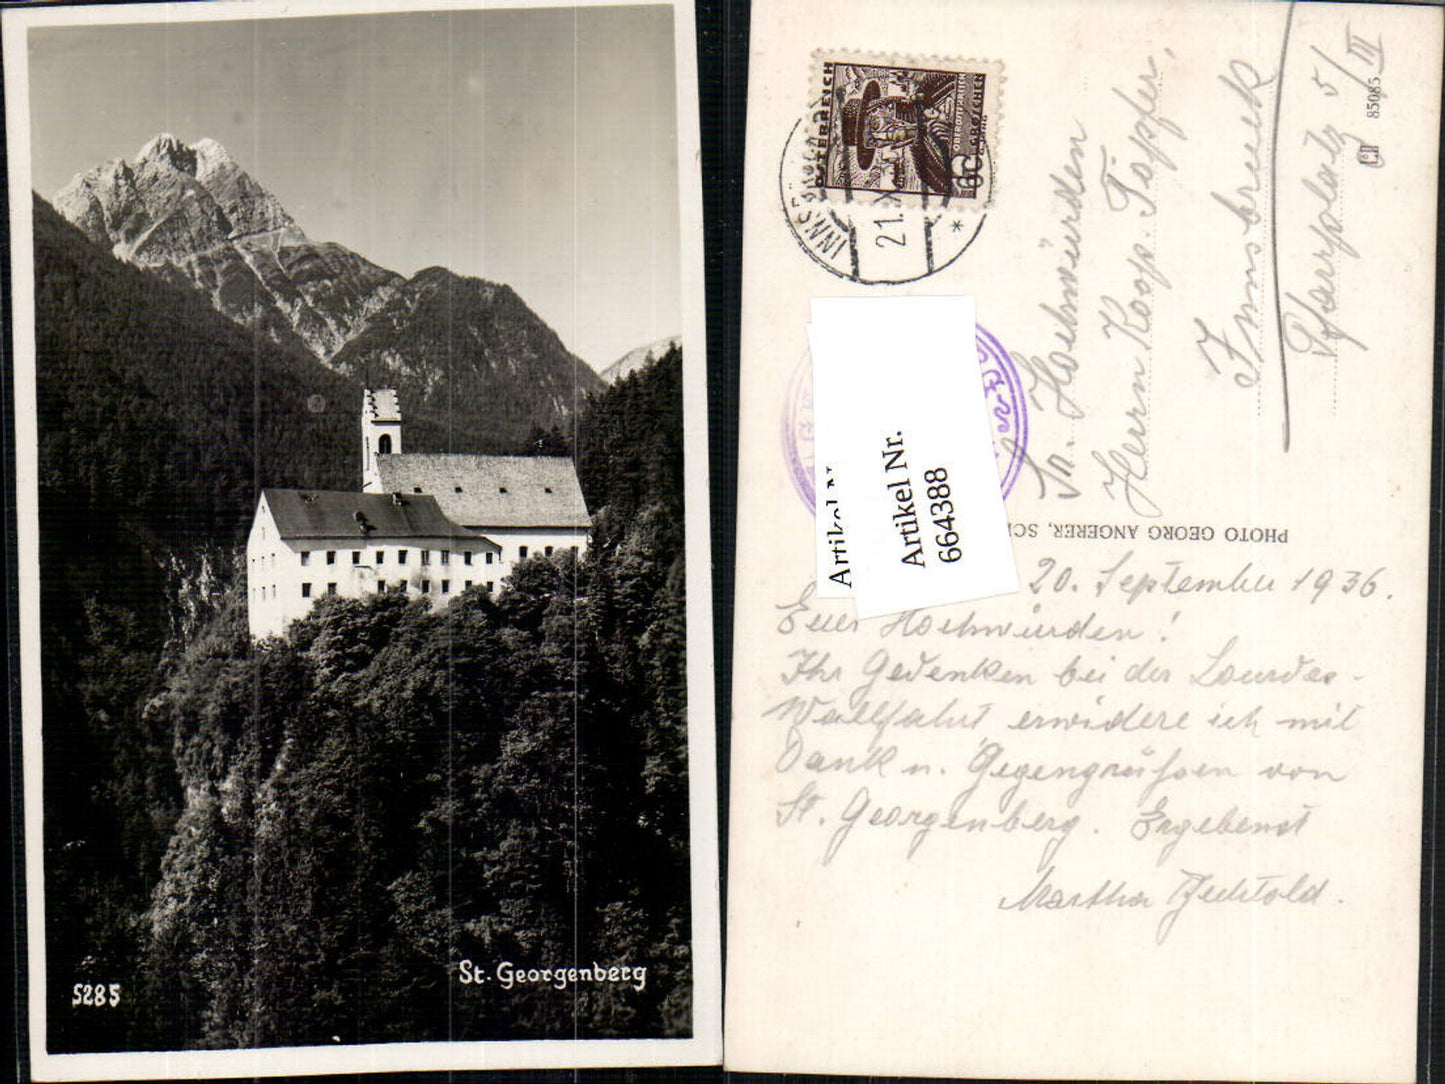 5285
St. Georgenberg
ÖSTERREICH
OBERÖSTERREICH
GROSCHEN
21.X
*
Artikel Nr.
Artikel Nr.
664388
PHOTO GEORG ANGERER, SC
85085
Sr. Hochwürden
Herrn Koop. Töpfer,
Innsbruck
Pfarrplatz 5/III
20. September 1936.
Euer Hochwürden!
Ihr Gedenken bei der Lourdes-
Wallfahrt erwidere ich mit
Dank u. Gegengrüßen von
St. Georgenberg. Ergebenst
Martha